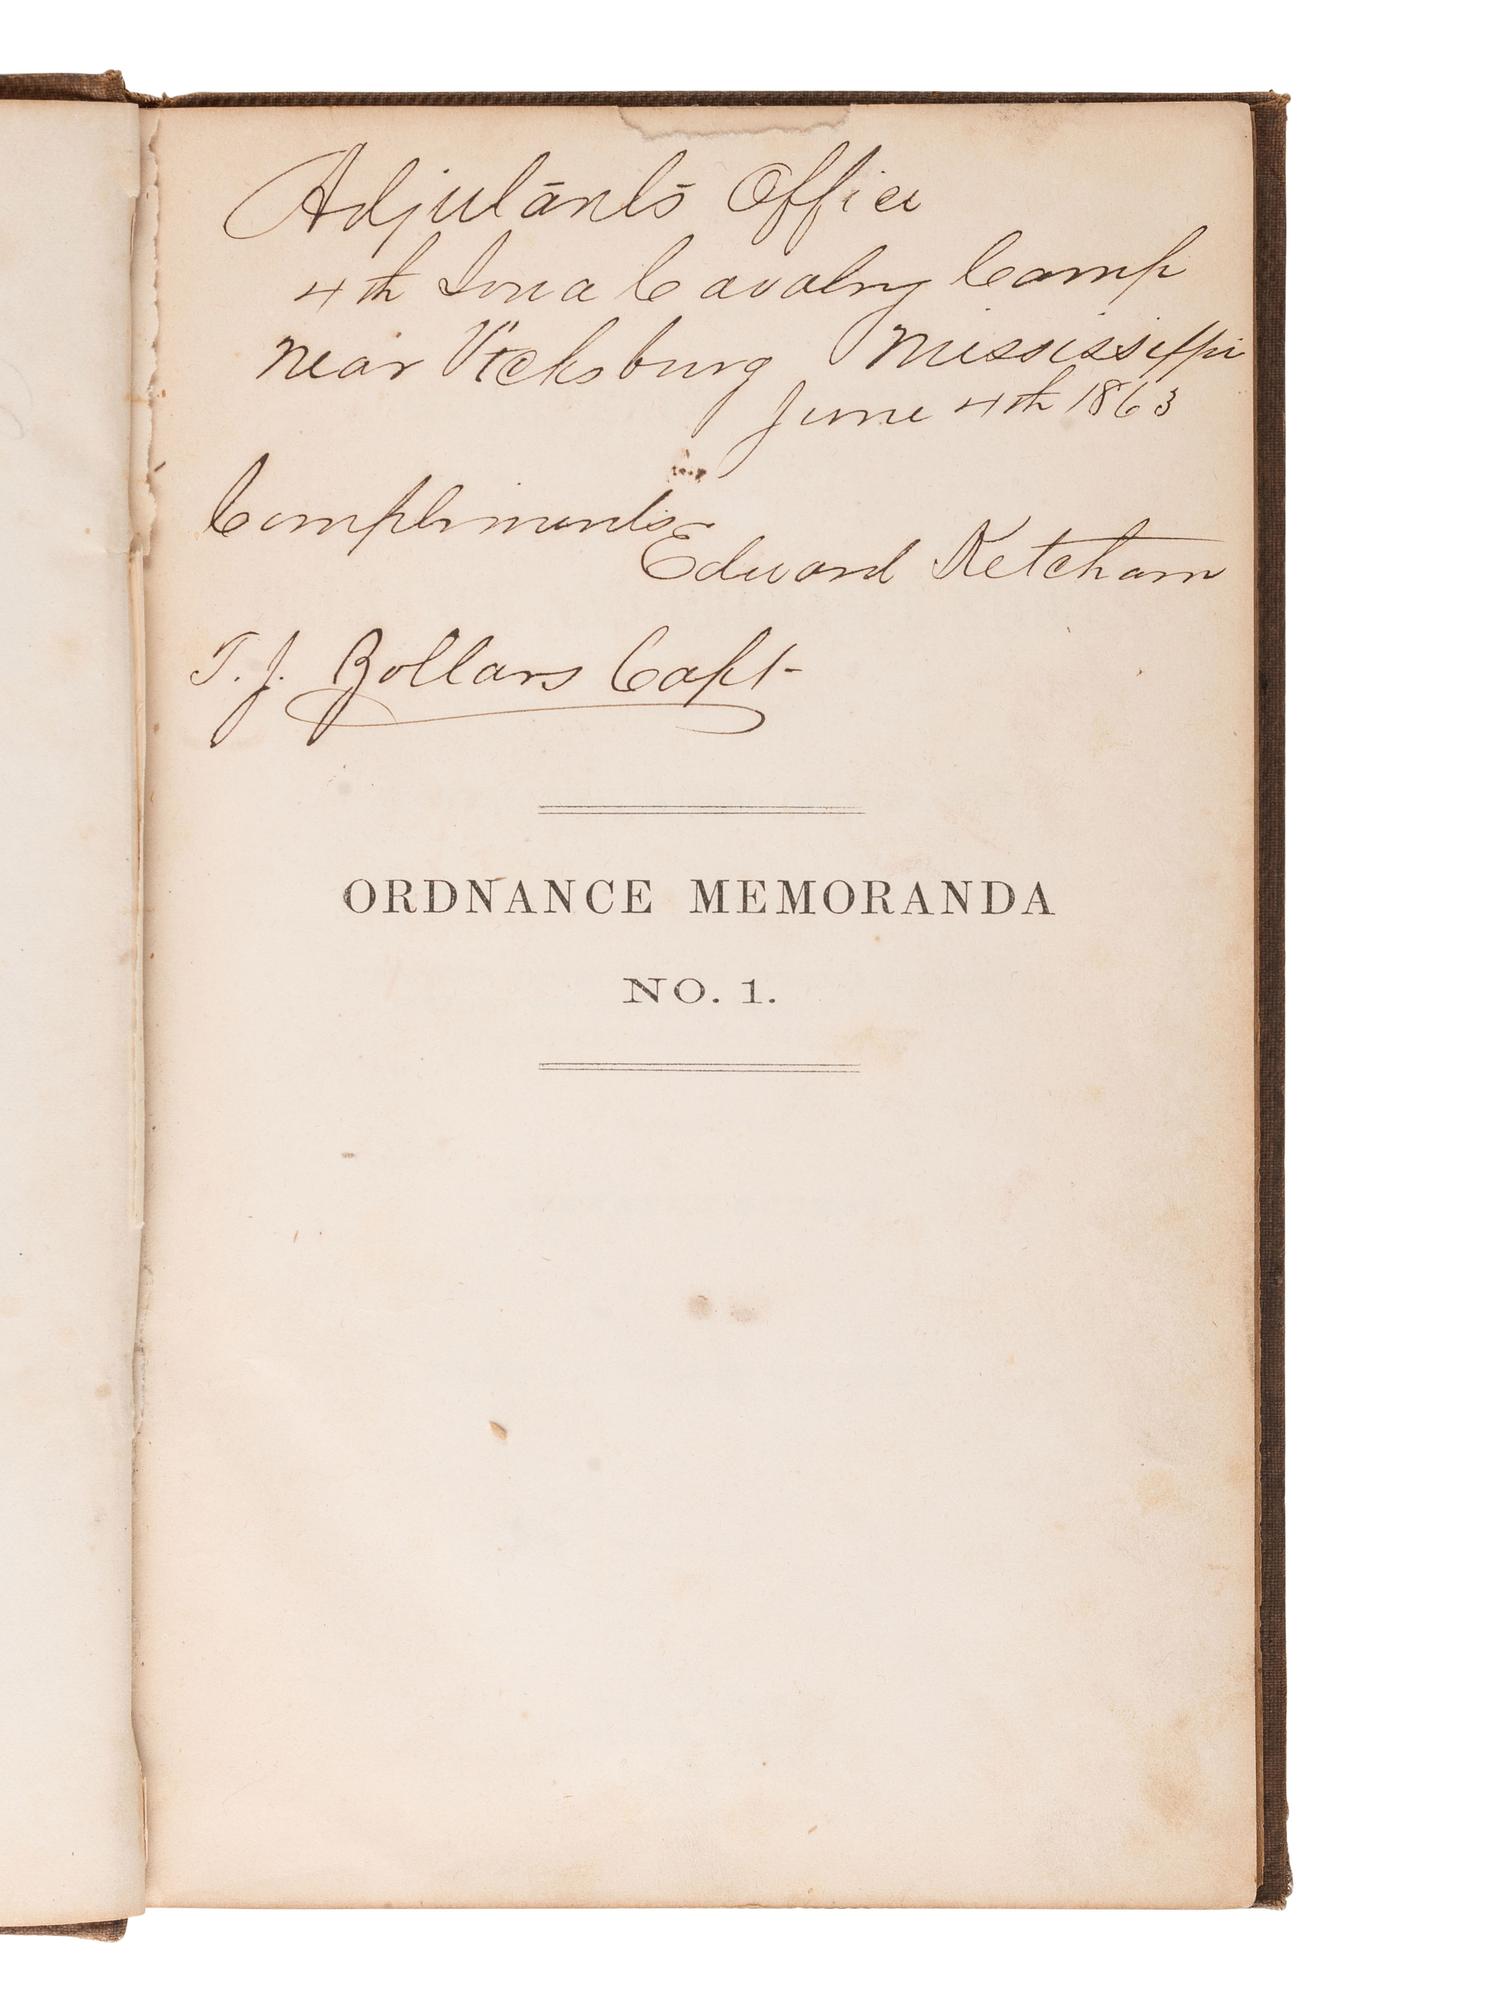 Adjutants Office
4th Iowa Cavalry Camp
near Vicksburg Mississippi
June 4th 1863
Compliments
Edward Ketcham
T. J. Zollars Capt
ORDNANCE MEMORANDA
NO. 1.